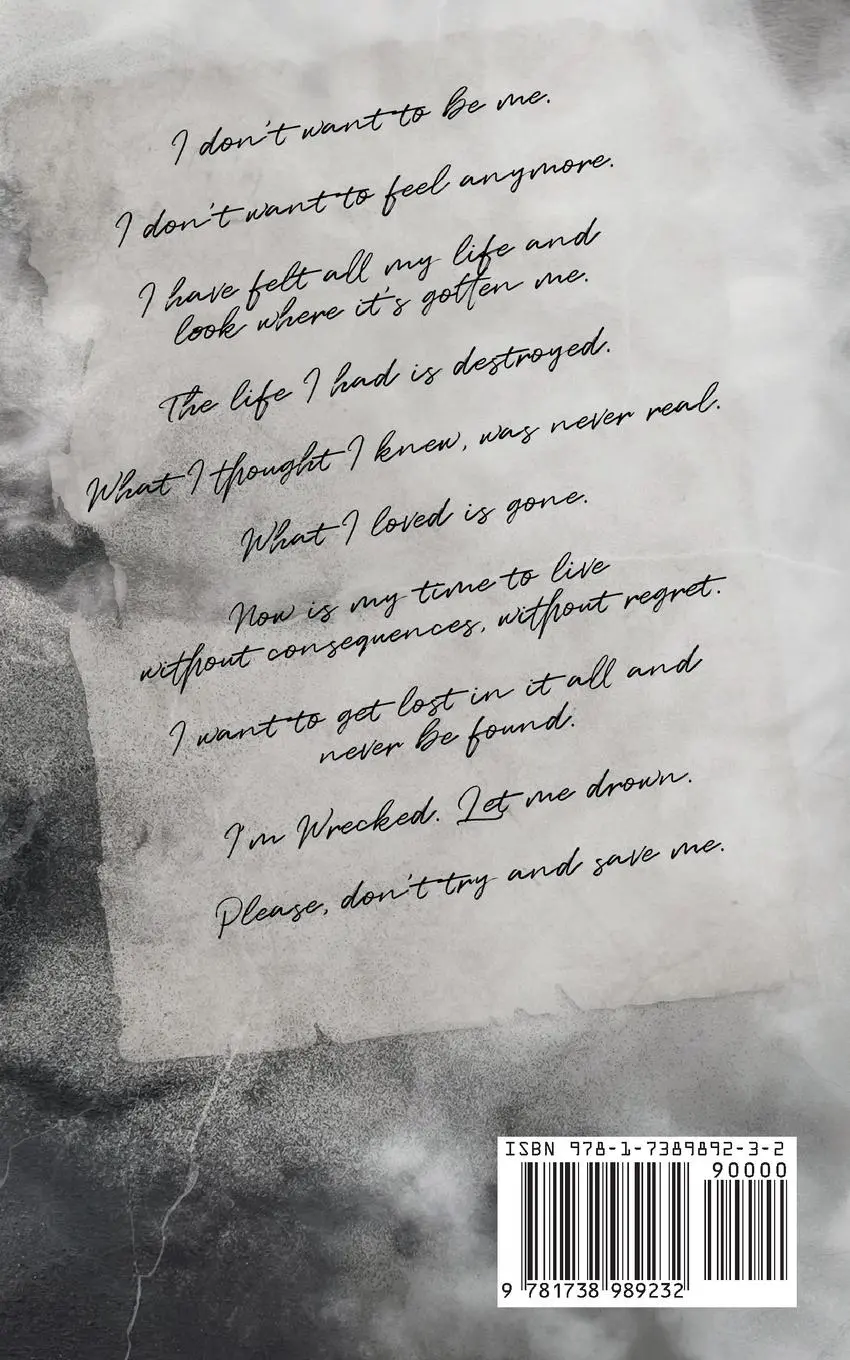 I don't want to be me.
I don't want to feel anymore.
I have felt all my life and
look where it's gotten me.
The life I had is destroyed.
What I thought I knew, was never real.
What I loved is gone.
Now is my time to live
without consequences, without regret.
I want to get lost in it all and
never be found.
I'm Wrecked. Let me drown.
Please, don't try and save me.
ISBN 978-1-7389892-3-2
90000
9 781738 989232